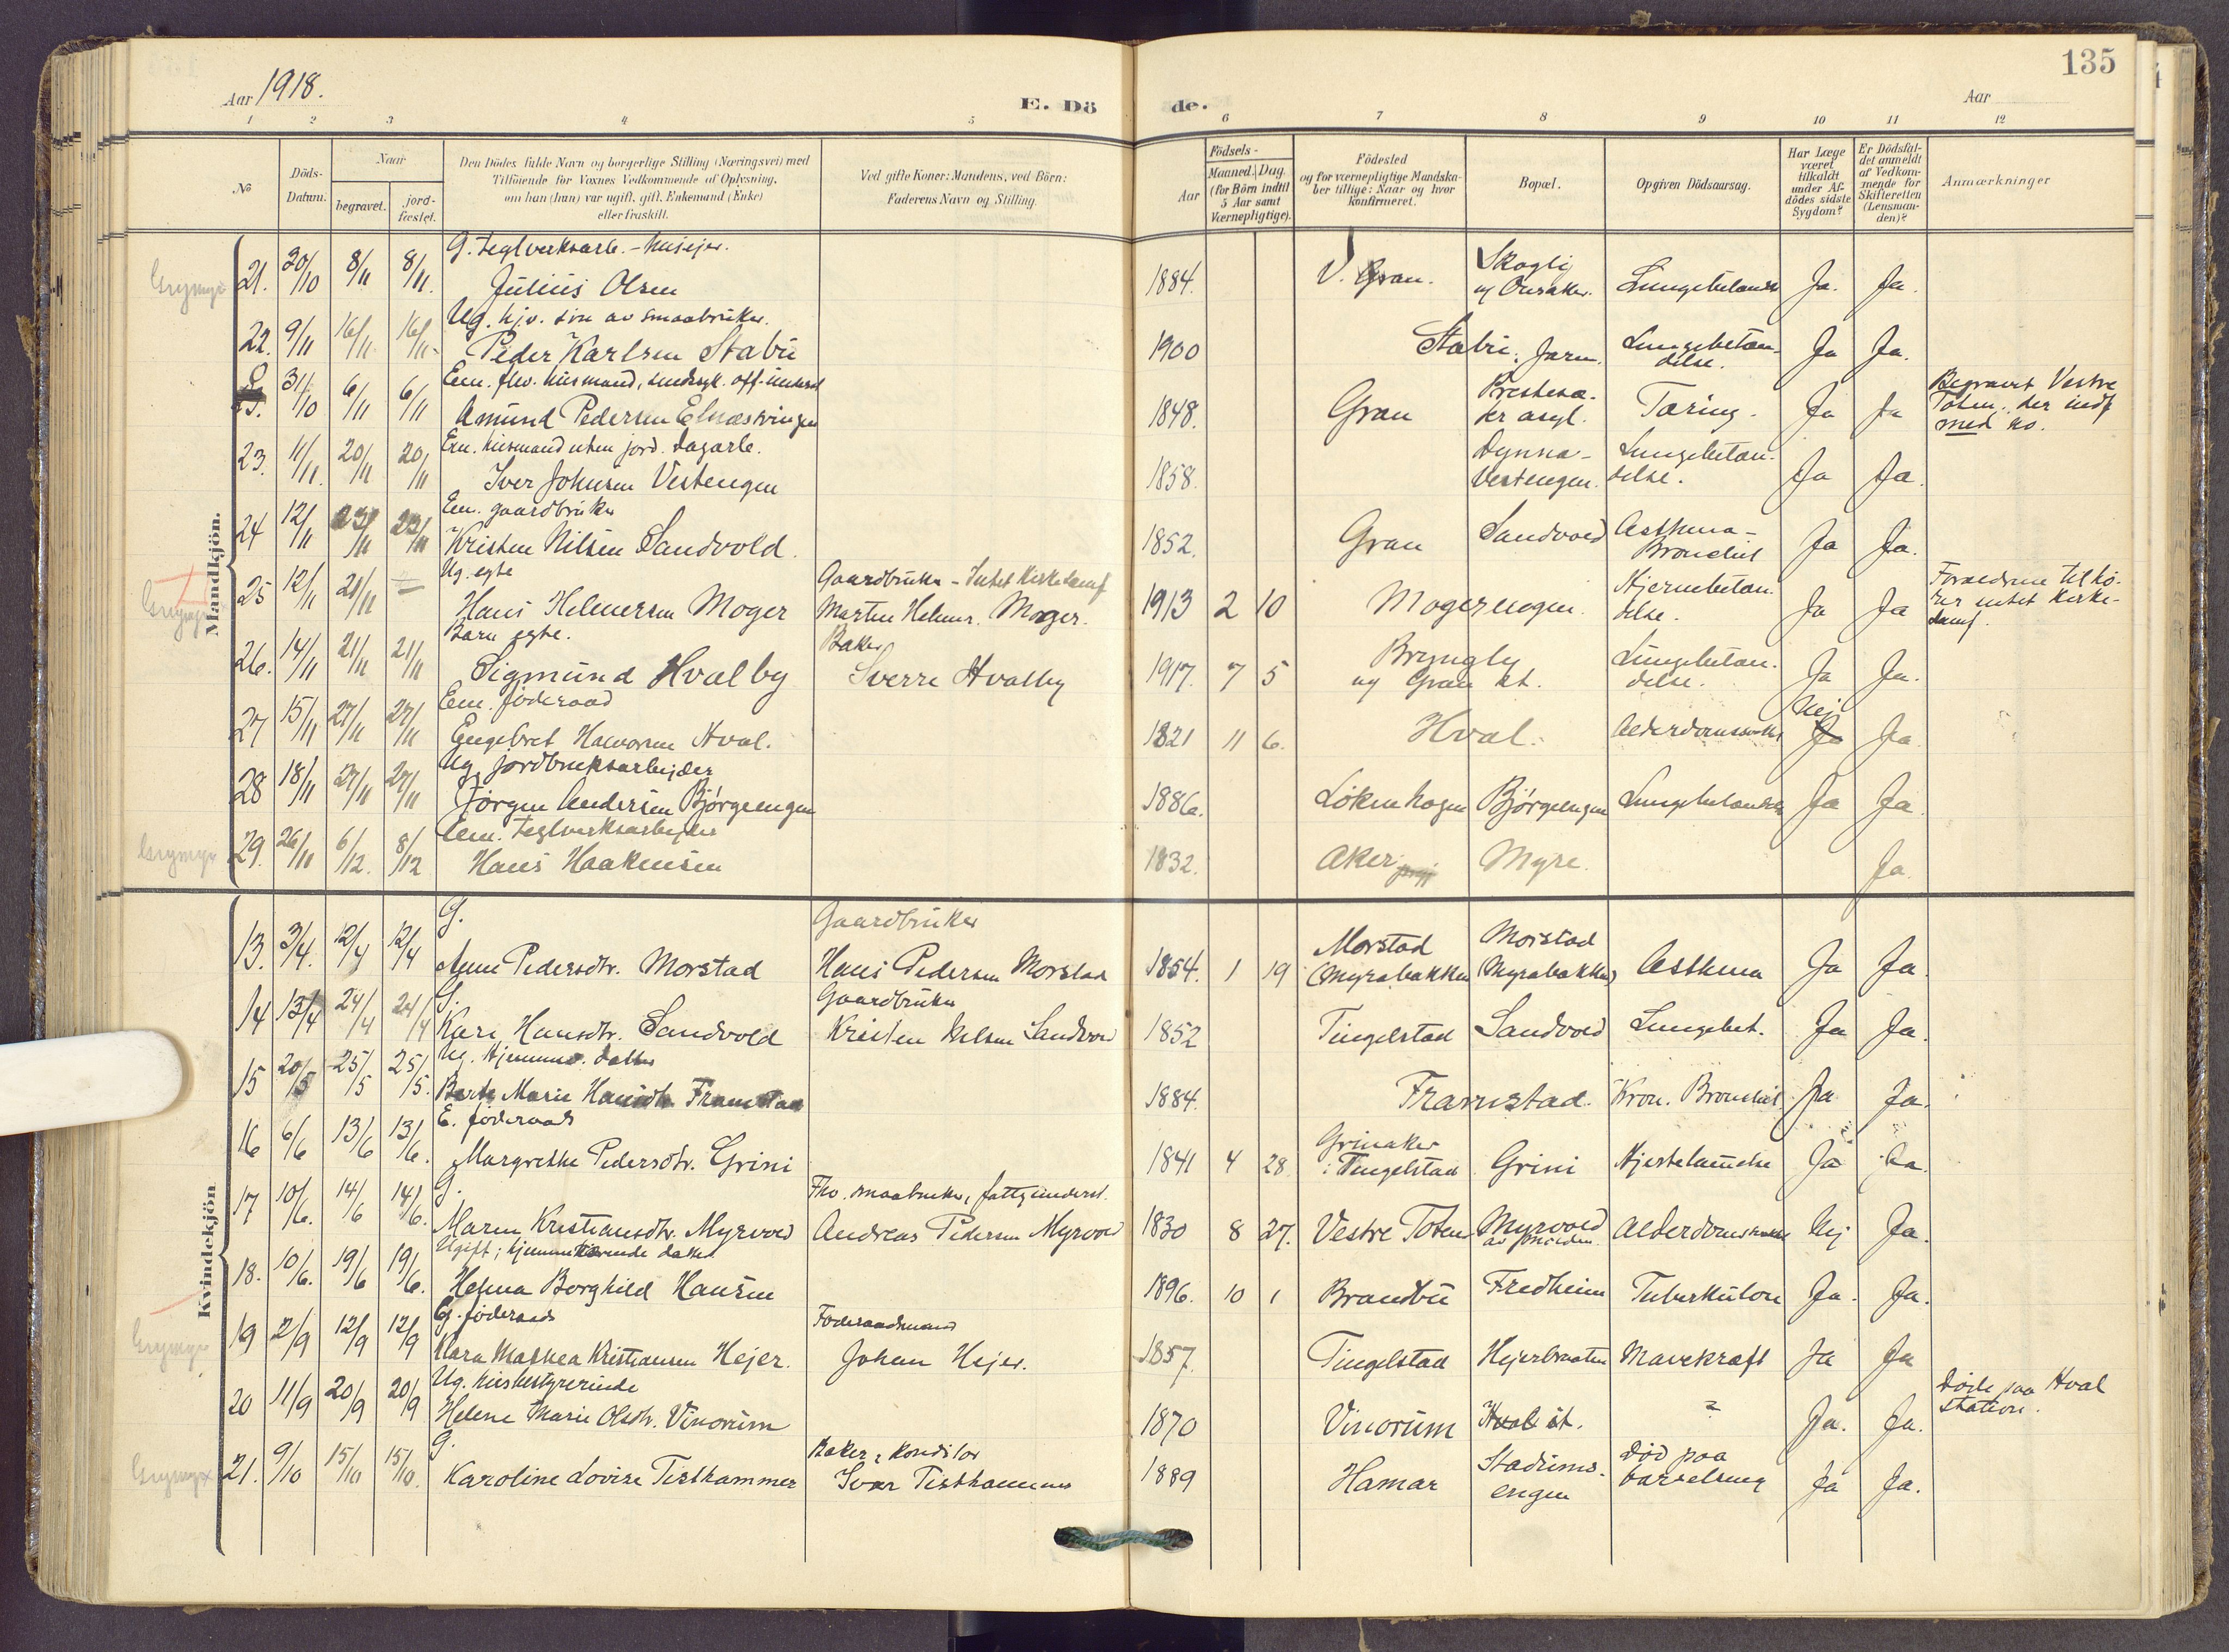 135
Aar 1918.
E. Dö de.
Aar
1 2 3 4 5 6 7 8 9 10 11 12
No
Döds-
Datum.
Naar
begravet.
jord-
fæstet.
Den Dödes fulde Navn og borgerlige Stilling (Næringsvei) med
Tilföiende for Voxnes Vedkommende af Oplysning,
om han (hun) var ugift, gift, Enkemand (Enke)
eller fraskilt.
Ved gifte Koner: Mandens, ved Börn:
Faderens Navn og Stilling.
Aar
Födsels-
Maaned. Dag.
(for Börn indtil
5 Aar samt
Værnepligtige).
Födested
og for værnepligtige Mandska-
ber tillige: Naar og hvor
konfirmeret.
Bopæl.
Opgiven Dödsaarsag.
Har Læge
været
tilkaldt
under Af-
dödes sidste
Sygdom?
Er Dödsfal-
det anmeldt
af Vedkom-
mende for
Skifteretten
(Lensman-
den)?
Anmærkninger
Mandkjön.
G. teglverksarb. - husejer.
21. 20/10 8/11 8/11. Julius Olsen 1884. V. Gran. Skogli Ja. Ja.
Ug. hjv. søn av smaabruker.
22. 9/11 16/11 16/11 Peder Karlsen Stabu 1900 Jarn. Lungebetæn-
delse. Ja Ja.
31/10 6/11 6/11 Amund Pedersen 1848. Gran Prestesæ-
ter asyl. Tæring. Ja Ja Begravet Vestre
Toten, der indf
med no.
Em. husmand uten jord. dagarb.
23. 11/11. 20/11 20/11 Iver Johnsen Vestengen 1858. Dynna-
Vestengen. Lungebetæn-
delse. Ja Ja.
Em. gaardbruker
24 12/11 23/11 23/11 Kristen Nilsen Sandvold. 1852. Gran Sandvold Asthma-
Bronchit Ja Ja.
Ug. egte Gaardbruker - Intet Kirkesamf
25 12/11 21/11 Hans Helmersen Moger Martin Helmers. Moger. 1913 2 10 Mogerengen. Hjernebetæn-
delse. Ja Ja Forældrene tilhø-
rer intet kirke-
samf.
Barn egte. Baker
26. 14/11 21/11 21/11 Sigmund Hvalby Sverre Hvalby 1917. 7 5 Bryngly
Gran st. Lungebetæn-
delse. Ja Ja.
Em. føderaad
27 15/11 27/11 27/11 Engebret Halvorsen Hval. 1821 11 6. Hval. Nej Ja
Ug. jordbruksarbejder
28 18/11 27/11 27/11 Jørgen Andersen Bjørgeengen 1886. Løkenhagen Bjørgeengen Ja Ja
Em. teglverksarbejder
29. 26/11 6/12. 8/12 Hans Haakensen 1832. Aker Myre. Ja.
Kvindekjön
G. Gaardbruker
13. 3/4. 12/4 12/4 Anne Pedersdtr. Morstad Hans Pedersen Morstad 1854. 1 19 Morstad
(Myrabakken Morstad
(Myrabakken) Asthma Ja Ja
G. Gaardbruker
14 13/4 24/4 24/4 Kari Hansdtr. Sandvold Kristen Nilsen Sandvold 1852 Tingelstad Sandvold Lungebet. Ja Ja.
Ug. Hjemmev. datter
15 20/5 25/5 25/5. Berte Marie Hansdtr Framstad 1884. Framstad. Kron. Bronchit Ja Ja.
E. føderaads
16 6/6 13/6 13/6. Margrethe Pedersdtr. Grini 1841 4 28. Grinaker
i Tingelstad Grini Ja Ja.
G. Fhv. smaabruker, fattigunderst.
17 10/6. 14/6 14/6. Maren Kristiansdtr. Myrvold Andreas Pedersen Myrvold 1830 8 27. Vestre Toten Myrvold Nej Ja.
Ugift; hjemmeværende datter
18. 10/6. 19/6 19/6. Helma Borghild Hansen 1896. 10 1 Brandbu Fredheim Tuberkulose Ja. Ja.
G. føderaads Føderaadsmand
19 2/9 12/9 12/9 Klara Mathea Kristiansen Hejer. Johan Hejer. 1857. Tingelstad Hejerbraaten Mavekræft Ja Ja
Ug. husbestyrerinde
20 11/9 20/9 20/9 Helene Marie Olsdtr. Vinorum 1870 Vinorum Hval st. ? Ja. Ja. Døde paa Hval
station.
G. Baker & Konditor
21. 9/10 15/10 15/10. Karoline Lovise Tisthammer Ivar Tisthammer 1889 Hamar Stadums-
engen Død paa
barselseng Ja Ja.